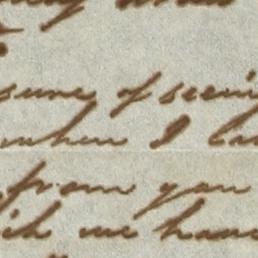 sure of seein
when I la
from you
ich we have